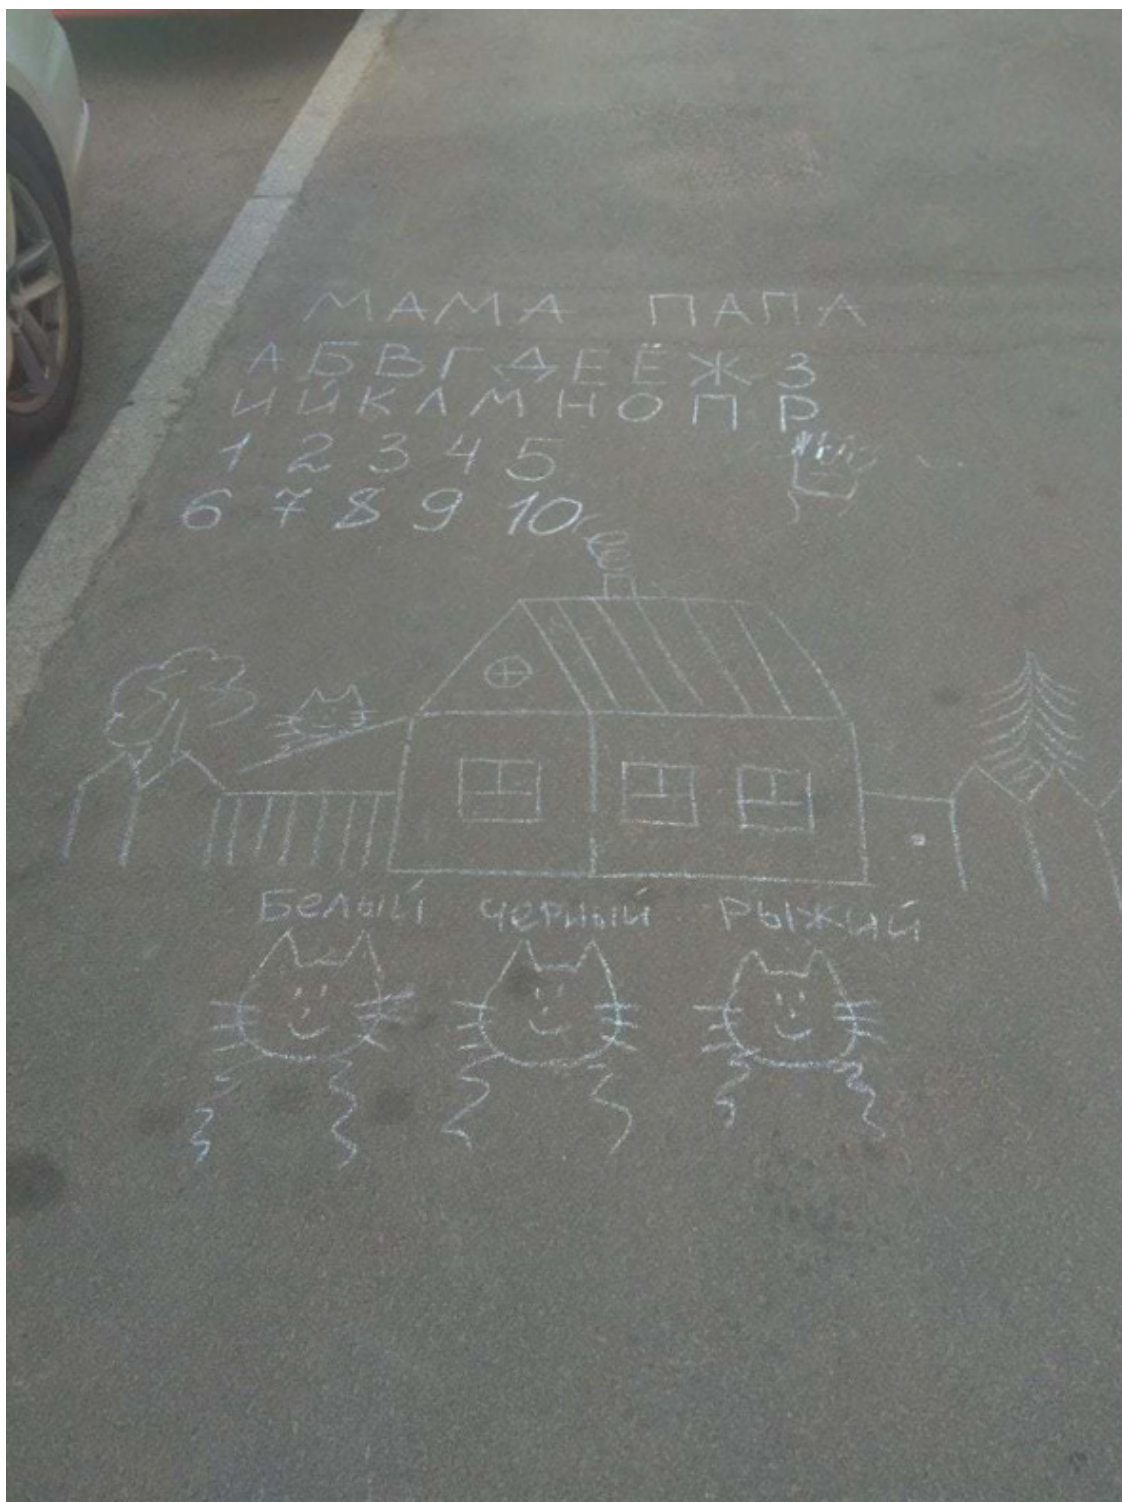 МАМА ПАПА
А Б В Г Д Е Ё Ж З
И Й К Л М Н О П Р
1 2 3 4 5
6 7 8 9 10
Белый черный рыжий